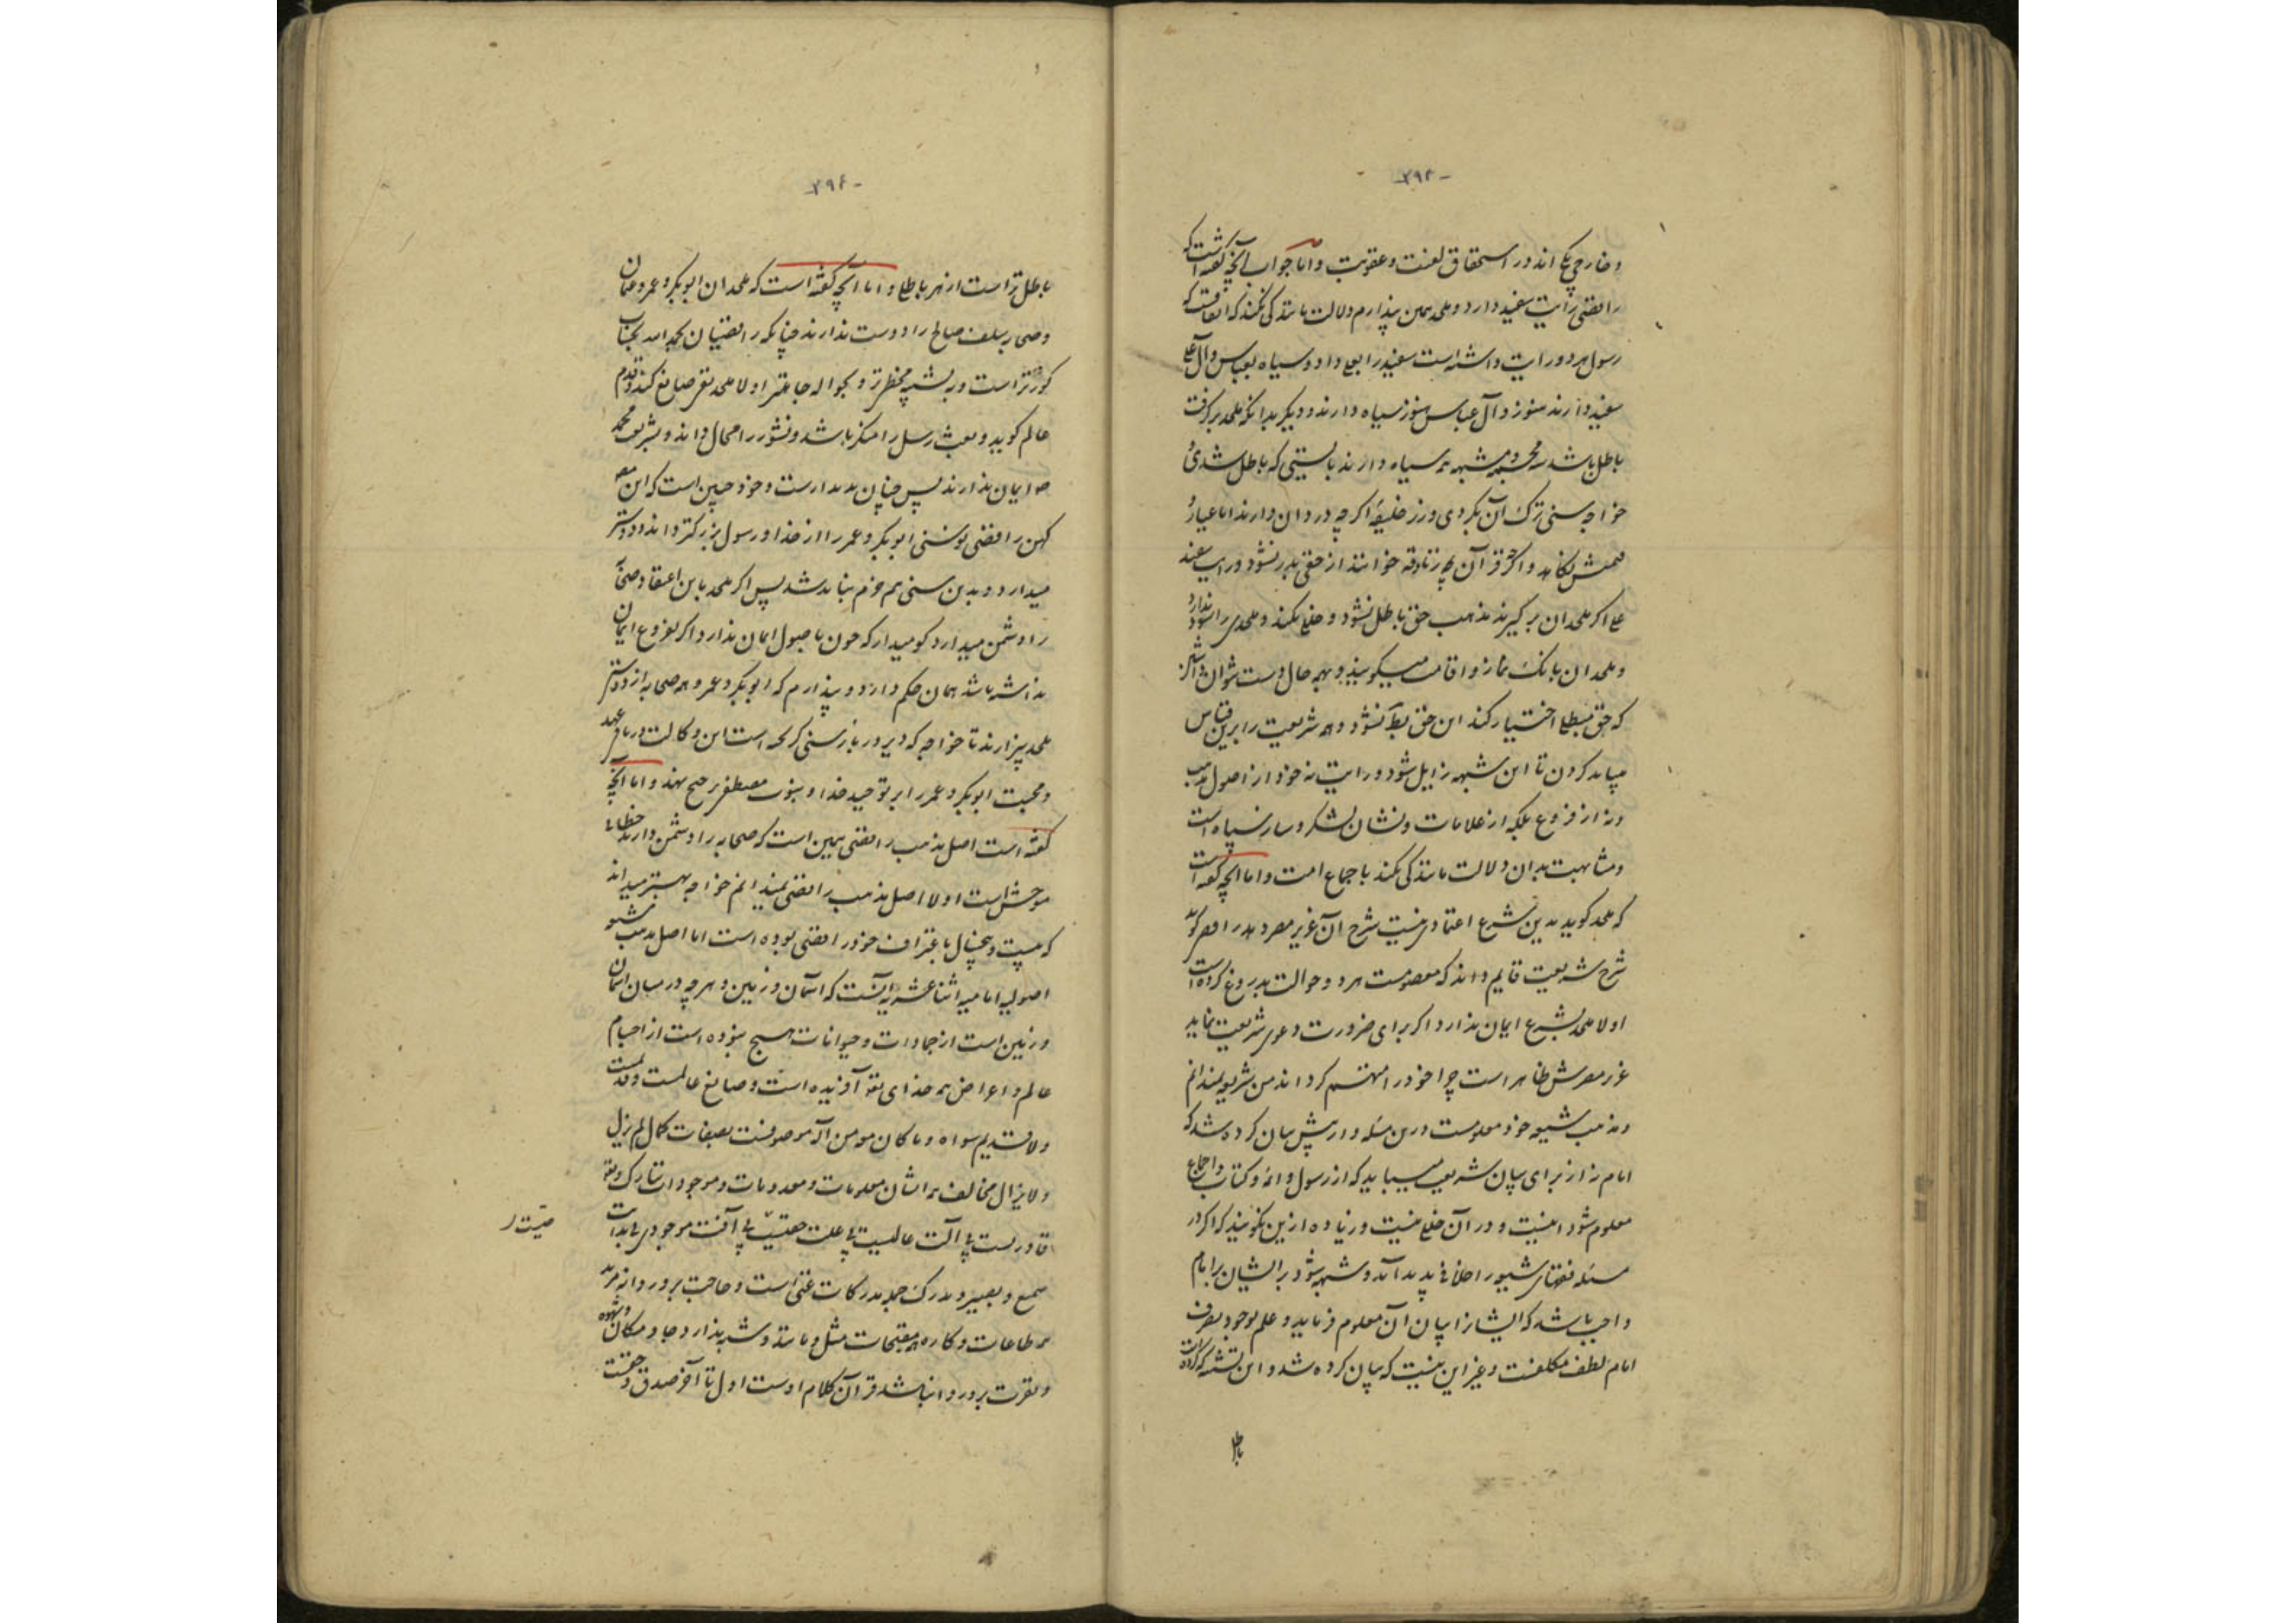 -۲۹۳-
و خارجی یکی اند در استحقاق لعنت و عقوبت و اما جواب آنچه گفته است که
رافضی رایت سفید دارد و ملحد همین پندارم دلالت مانندگی نکند که اتفاقست که
رسول هر دو رایت داشته است سفید را بعلی داد و سیاه بعباس و آل علی
سفید دارند هنوز و آل عباس هنوز سیاه دارند و دیگر بدانکه ملحد برگرفت
باطل باشد نه مجبره و مشبهه همه سیاه دارند بایستی که باطل شدی و
خواجه سنی ترک آن بکردی و رز خلیفه اگر چه دزدان دارند اما عیار و
قیمتش بنکاهد و اگر قرآن همه زنادقه خوانند از حقی بدر نشود و رایت سفید
علی اگر ملحدان برگیرند مذهب حق باطل نشود و خلل نکند و ملحدی را سود ندارد و
و ملحدان بانگ نماز و اقامت میگویند و بهمه حال دست نتوان داشتن
که حق مبطل اختیار کند این حق بط نشود و همه شریعت را برین قیاس
میباید کردن تا این شبهه زایل شود و رایت نه خود از اصول مذهبست
و نه از فروع بلکه از علامات و نشان لشکر و ساز سپاه است
و مشابهت بدان دلالت مانندگی نکند باجماع امت و اما آنچه گفته است
که ملحد گوید بدین شرع اعتمادی نیست شرح آن غریز مصر دهد رافضی گوید
شرح شریعت قایم داند که معصومست هر دو حوالت بدروغ کرده است
اولا ملحد بشرع ایمان ندارد اگر برای ضرورت دعوی شریعت نماید
غرر مصرش ظاهر است چرا خود را متهم کرداند من شریعت نمیدانم
و مذهب شیعه خود معلومست درین مسئله و از پیش بیان کرده شد که
امام نه از برای بیان شریعت میباید که از رسول و ائمه و کتاب و اجماع
معلوم شود اینست و در آن خللی نیست و زیاده ازین نگویند که اگر در
مسئله فقهای شیعه را خلافی پدید آید و شبهه شود بر ایشان بر امام
واجب باشد که ایشانرا بیان آن معلوم فرماید و علم بوجود معرفت
امام لطف مکلفست و غیر این نیست که بیان کرده شد و این تشنیه که کرده است
باطل
-۲۹۴-
باطل تر است از هر باطلی و اما آنچه گفته است که ملحدان ابوبکر و عمر و عثمان
و صحابه سلف صالح را دوست ندارند چنانکه رافضیان بحمد الله بجناب
کورتر است و بشبه مخطرتر و بحواله جاهلتر اولا ملحد نفی صانع کند و قدم
عالم گوید و بعث رسل را منکر باشد و نشور را محال داند و بشریعت محمد
ص ایمان ندارند پس چنان پندارست و خود چنین است که این مصنف
کهن رافضی نوسنی ابوبکر و عمر را از خدا و رسول بزرگتر داند و دوستر
میدارد و بدین سنی هم خرم نباید شد پس اگر ملحد با این اعتقاد صحابه
را دشمن میدارد گو میدار که چون باصول ایمان ندارد اگر بفروع ایمان
نداشته باشد همان حکم دارد و پندارم که ابوبکر و عمر و همه صحابه از دوستی
ملحد بیزارند تا خواجه که دیرور باز سنی گریخته است این وکالت در باقی نهد
و محبت ابوبکر و عمر را بر توحید خدا و نبوت مصطفی ترجیح ننهد و اما آنچه
گفته است اصل مذهب رافضی همین است که صحابه را دشمن دارند خطائی
موحش است اولا اصل مذهب رافضی نمیدانم خواجه بهتر میداند
که بیست و پنج سال باعتراف خود رافضی بوده است اما اصل مذهب شیعه
اصولیه امامیه اثنا عشریه آنست که آسمان و زمین و هر چه در میان آسمان
و زمین است از جمادات و حیوانات هیچ نبوده است از اجسام
عالم و اعراض همه خدای تعه آفریده است و صانع عالمست و قدیمست
ولا قدیم سواه و ما کان مومن آله موصوفست بصفات کمال لم یزل
و لا یزال مخالف همه اشان معلومات و معدومات و موجودات تبارک و تعه
قادرست بی آلت عالمیست بی علت حیّیست بی آفت موجودی بی بدایت
حیّیت ر
سمیع و بصیر و مدرک جمله مدرکات غنی است و حاجت برو روا نه مرید
همه طاعات و کاره همه مقبحات مثل و مانند و شبه ندارد و جا و مکان و شهوه
و نفرت برو روا نباشد قرآن کلام اوست اول تا آخر صدق و حقست